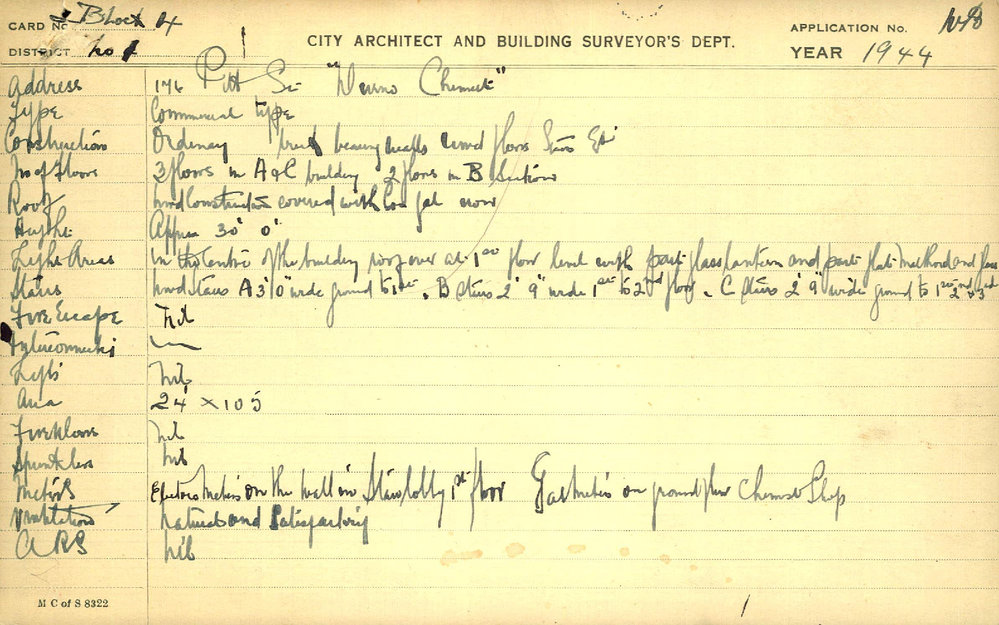 CARD No. Block 4
DISTRICT No 1
CITY ARCHITECT AND BUILDING SURVEYOR'S DEPT.
APPLICATION No.
YEAR 1944
Address 176 Pitt St Chemist"
Type Commercial type
Construction Ordinary brick bearing walls wood floors Stairs Etc
No of Floors 3 floors in A & C building 2 floors in B Section
Roof wood Construction covered with iron
Height Approx 30' 0"
Light Areas In the Centre of the building roof over at 1st floor level with part glass lantern and part flat
Stairs wood stairs A 3' 0" wide ground to 1st. B Stairs 2' 9" wide 1st to 2nd floor. C Stairs 2' 9" wide ground to 1st 2nd & 3rd
Fire Escape Nil
Lifts Nil
Area 24' x 105
Fire Nil
Sprinklers Nil
Meters Electric Meters on the wall in Stairs lobby 1st floor Gas Meters on ground floor Chemist Shop
Ventilation Natural and Satisfactory
ARS Nil
M C of S 8322